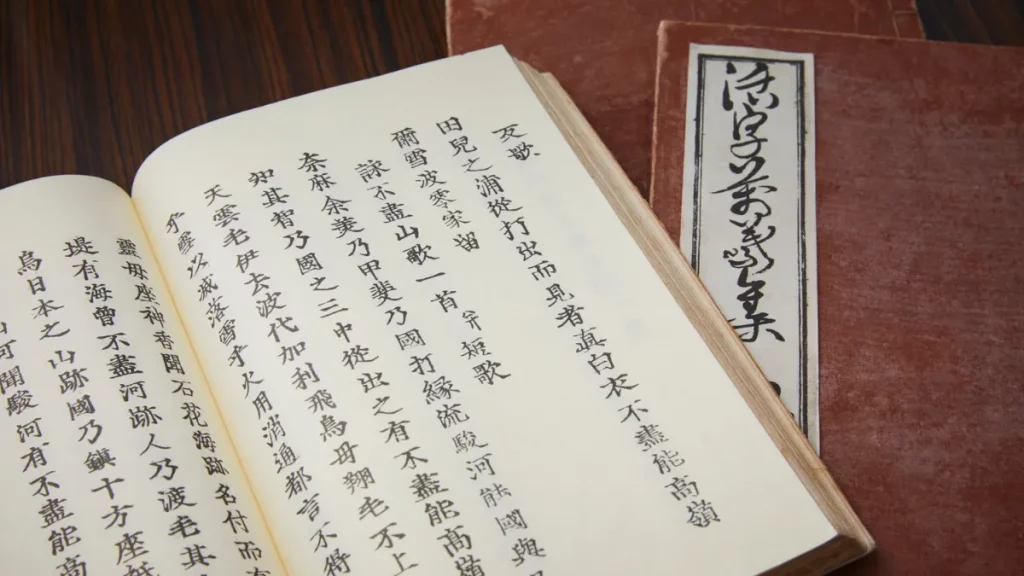 反歌
田兒之浦從打出而見者眞白衣不盡能高嶺
爾雪波零家留
詠不盡山歌一首 并短歌
奈麻余美乃甲斐乃國打縁流駿河能國與
知其智乃國之三中從出之有不盡能高嶺
天雲毛伊去波代加利飛鳥母翔毛不上
乎雪以滅落雪乎火用消通都言不得
靈母座神香聞石花海跡名付而
堤有海曾不盡河跡人乃渡毛其
烏日本之山跡國乃鎮十方座祇
山可聞駿河有不盡能高
活字 萬葉集